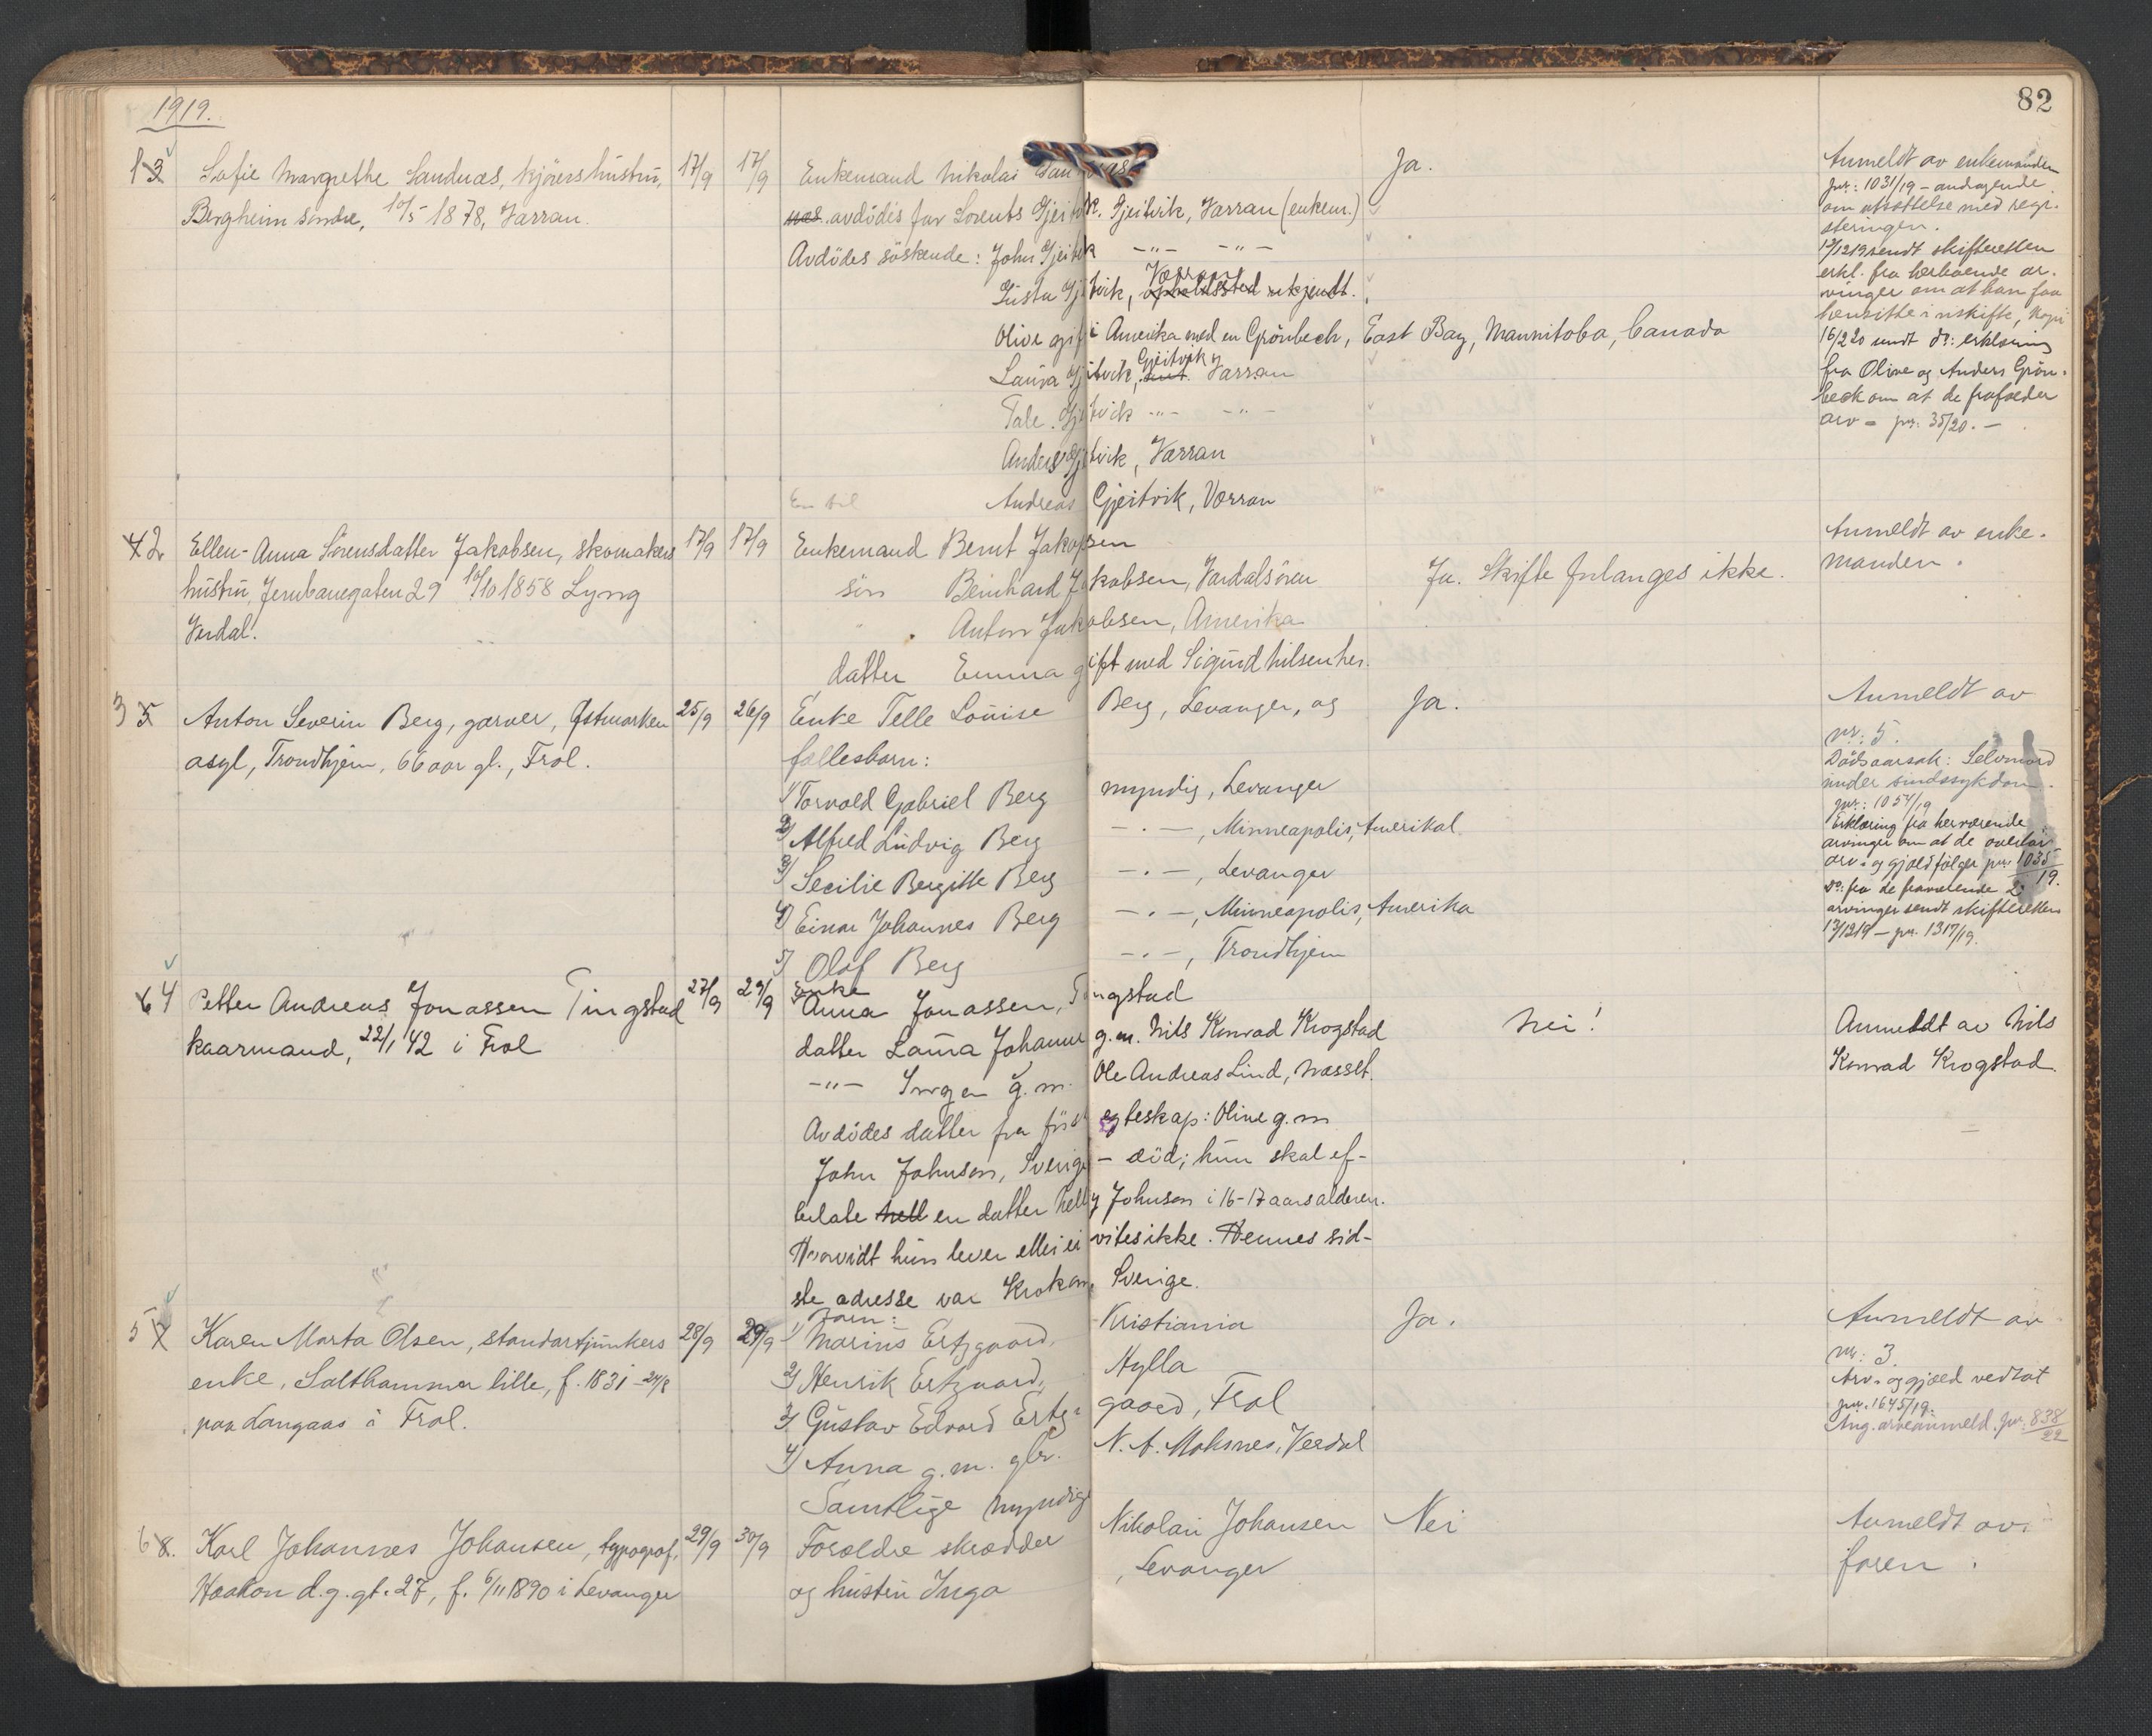 1919.
82
1 3 Sofie Margrethe Sandnæs, kjörershustru, 17/9 17/9 Enkemand Nikolai Ja.
Bergheim söndre, 10/5 1878, Varran. nes. avdödes far Lorents Gjeitvik. Gjeitvik, Varran (enkem.)
Avdödes söskende: John Gjeitvik -"- -"-
Gusta Gjeitvik, Værran opholdssted ukjendt.
Olive gift i Amerika med en Grönbech, East Bay, Mannitoba, Canada
Laura Gjeitvik, Gjeitvik Varran
Tale Gjeitvik -"- -"-
Anders Gjeitvik, Værran
En til Andreas Gjeitvik, Værran
Anmeldt av enkemanden
jnr: 1031/19 - andragende
om utsættelse med regi-
streringen.
12/1219 sendt skifteretten
erkl. fra herboende ar-
vinger om at han faar
hensitte i uskifte,
16/2 20 sendt do: erklæring
fra Olive og Anders Grön-
beck om at de frafalder
arv - jnr. 35/20. -
4 2 Ellen-Anna Sörensdatter Jakobsen, skomakers 17/9 17/9 Enkemand Bernt Jakobsen
hustru, Jernbanegaten 29 10/10 1858 Lyng sön Bernhard Jakobsen, Værdalsören Ja. Skifte forlanges ikke.
Verdal. Anton Jakobsen, Amerika
datter Emma gift med Sigurd Nilsen her.
Anmeldt av enke-
manden.
3 5 Anton Severin Berg, garver, Östmarken 25/9 26/9 Enke Telle Louise Berg, Levanger, og Ja.
asyl, Trondhjem, 66 aar gl., Frol. fællesbarn:
1) Torvald Gabriel Berg myndig, Levanger
2) Alfred Ludvig Berg -"-, Minneapolis, Amerika
3) Secilie Bergitte Berg -"-, Levanger
4) Einar Johannes Berg -"-, Minneapolis, Amerika
5) Olaf Berg -"-, Trondhjem
Anmeldt av
nr: 5.
Dödsaarsak: Selvmord
under sindssykdom.
jnr: 1054/19
Erklæring fra herværende
arvinger om at de overtar
arv- og gjæld följer jnr. 1035/19.
Do: fra de fraværende 2
arvinger sendt skifteretten
12/1219 - jnr. 1317/19.
6 4 Petter Andreas Jonassen Tingstad 27/9 29/9 Enke Anna Jonassen, Tingstad
kaarmand, 22/1 42 i Frol datter Laura Johanne g.m. Nils Konrad Krogstad Nei!
-"- Inger g.m. Ole Andreas Lind, Næsset.
Avdödes datter fra förste egteskap: Oline g.m
John Johnson, Sverige - död; hun skal ef-
terlate hell en datter Nelly Johnson i 16-17 aarsalderen.
Hvorvidt hun lever eller ei vites ikke. Hennes sid-
ste adresse var Krokom, Sverige.
Anmeldt av Nils
Konrad Krogstad.
5 7 Karen Marta Olsen, standartjunkers 28/9 29/9 Barn: 1) Marius Ertzgaard, Kristiania Ja.
enke, Salthammer lille, f. 1831 - 24/8 2) Henrik Ertzgaard, Hylla
paa Langaas i Frol. 3) Gustav Edvard Ertz- gaard, Frol
4) Anna g.m. gbr. N. A. Moksnes, Verdal
Samtlige myndige
Anmeldt av
nr: 3.
Arv- og gjæld vedtat
jnr. 1645/19.
Ang. arveanmeld. jnr. 838/22
6 8. Karl Johannes Johansen, typograf, 29/9 30/9 Forældre skrædder Nikolai Johansen Nei
Haakon d.g. gt. 27, f. 6/11 1890 i Levanger og hustru Inga , Levanger
Anmeldt av
faren.